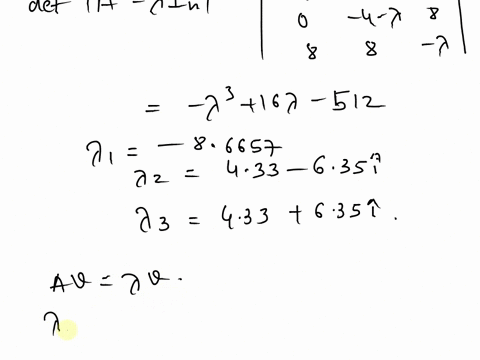 det |A - λIn|
0 -4-λ 8
8 8 -λ
= -λ³ + 16λ - 512
λ1 = - 8.6657
λ2 = 4.33 - 6.35î
λ3 = 4.33 + 6.35î .
Av = λv .
λ